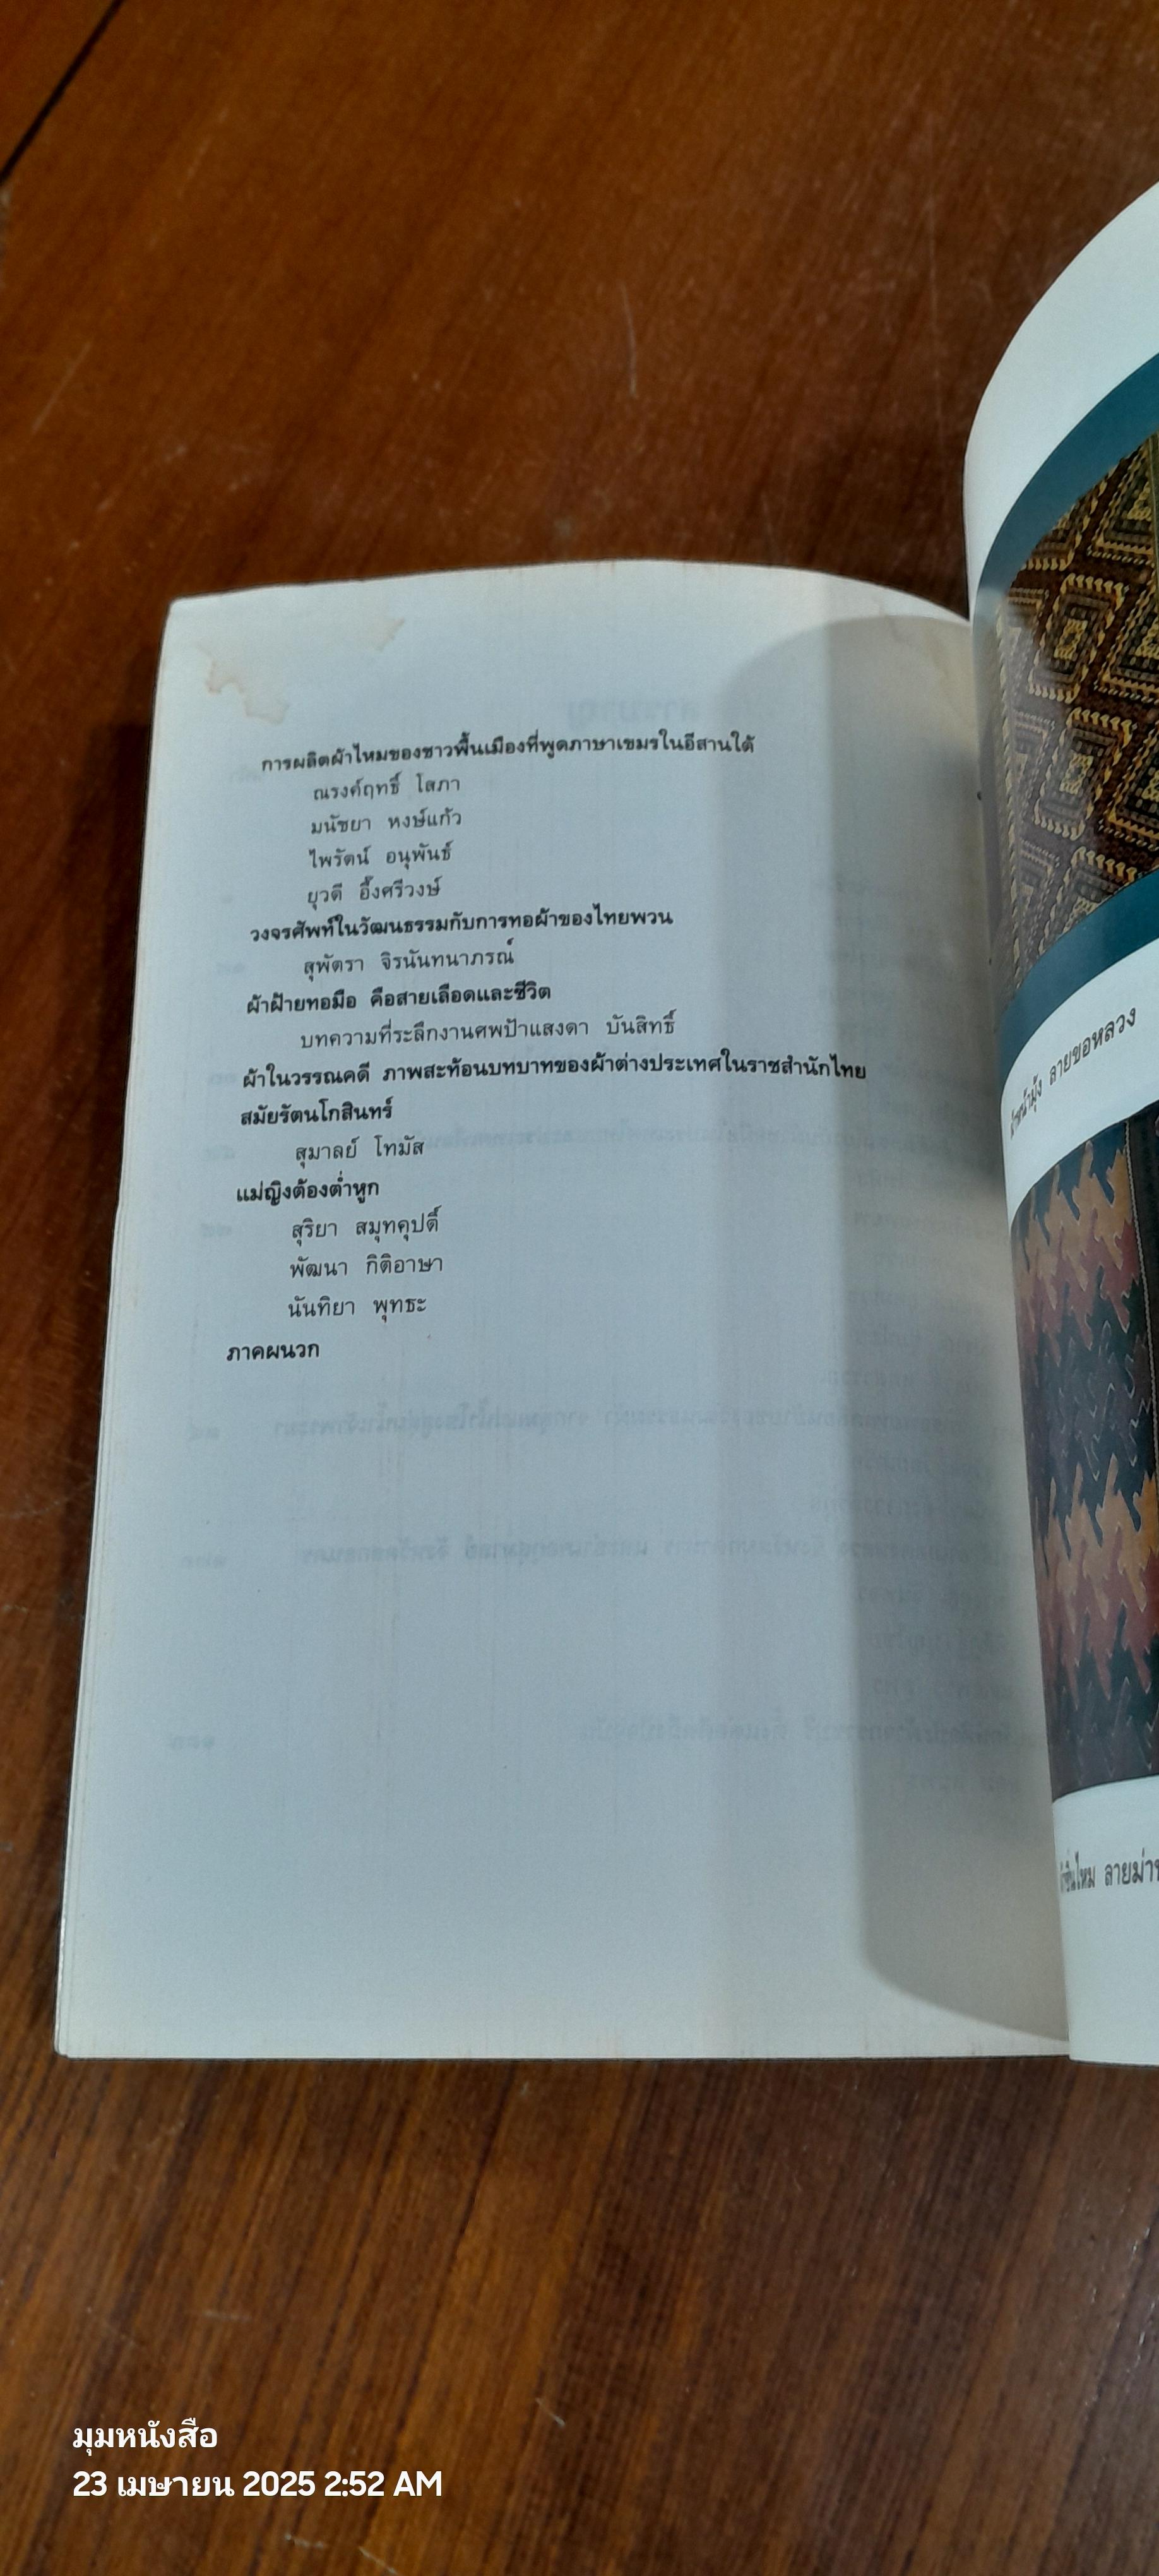 การผลิตผ้าไหมของชาวพื้นเมืองที่พูดภาษาเขมรในอีสานใต้
ณรงค์ฤทธิ์ โสภา
มนัชยา หงษ์แก้ว
ไพรัตน์ อนุพันธ์
ยุวดี อึ๊งศรีวงษ์
วงจรศัพท์ในวัฒนธรรมกับการทอผ้าของไทยพวน
สุพัตรา จิรนันทนาภรณ์
ผ้าฝ้ายทอมือ คือสายเลือดและชีวิต
บทความที่ระลึกงานศพป้าแสงดา บันสิทธิ์
ผ้าในวรรณคดี ภาพสะท้อนบทบาทของผ้าต่างประเทศในราชสำนักไทย
สมัยรัตนโกสินทร์
สุมาลย์ โทมัส
แม่ญิงต้องต่ำหูก
สุริยา สมุทคุปติ์
พัฒนา กิติอาษา
นันทิยา พุทธะ
ภาคผนวก
ลายขอหลวง
มุมหนังสือ
23 เมษายน 2025 2:52 AM